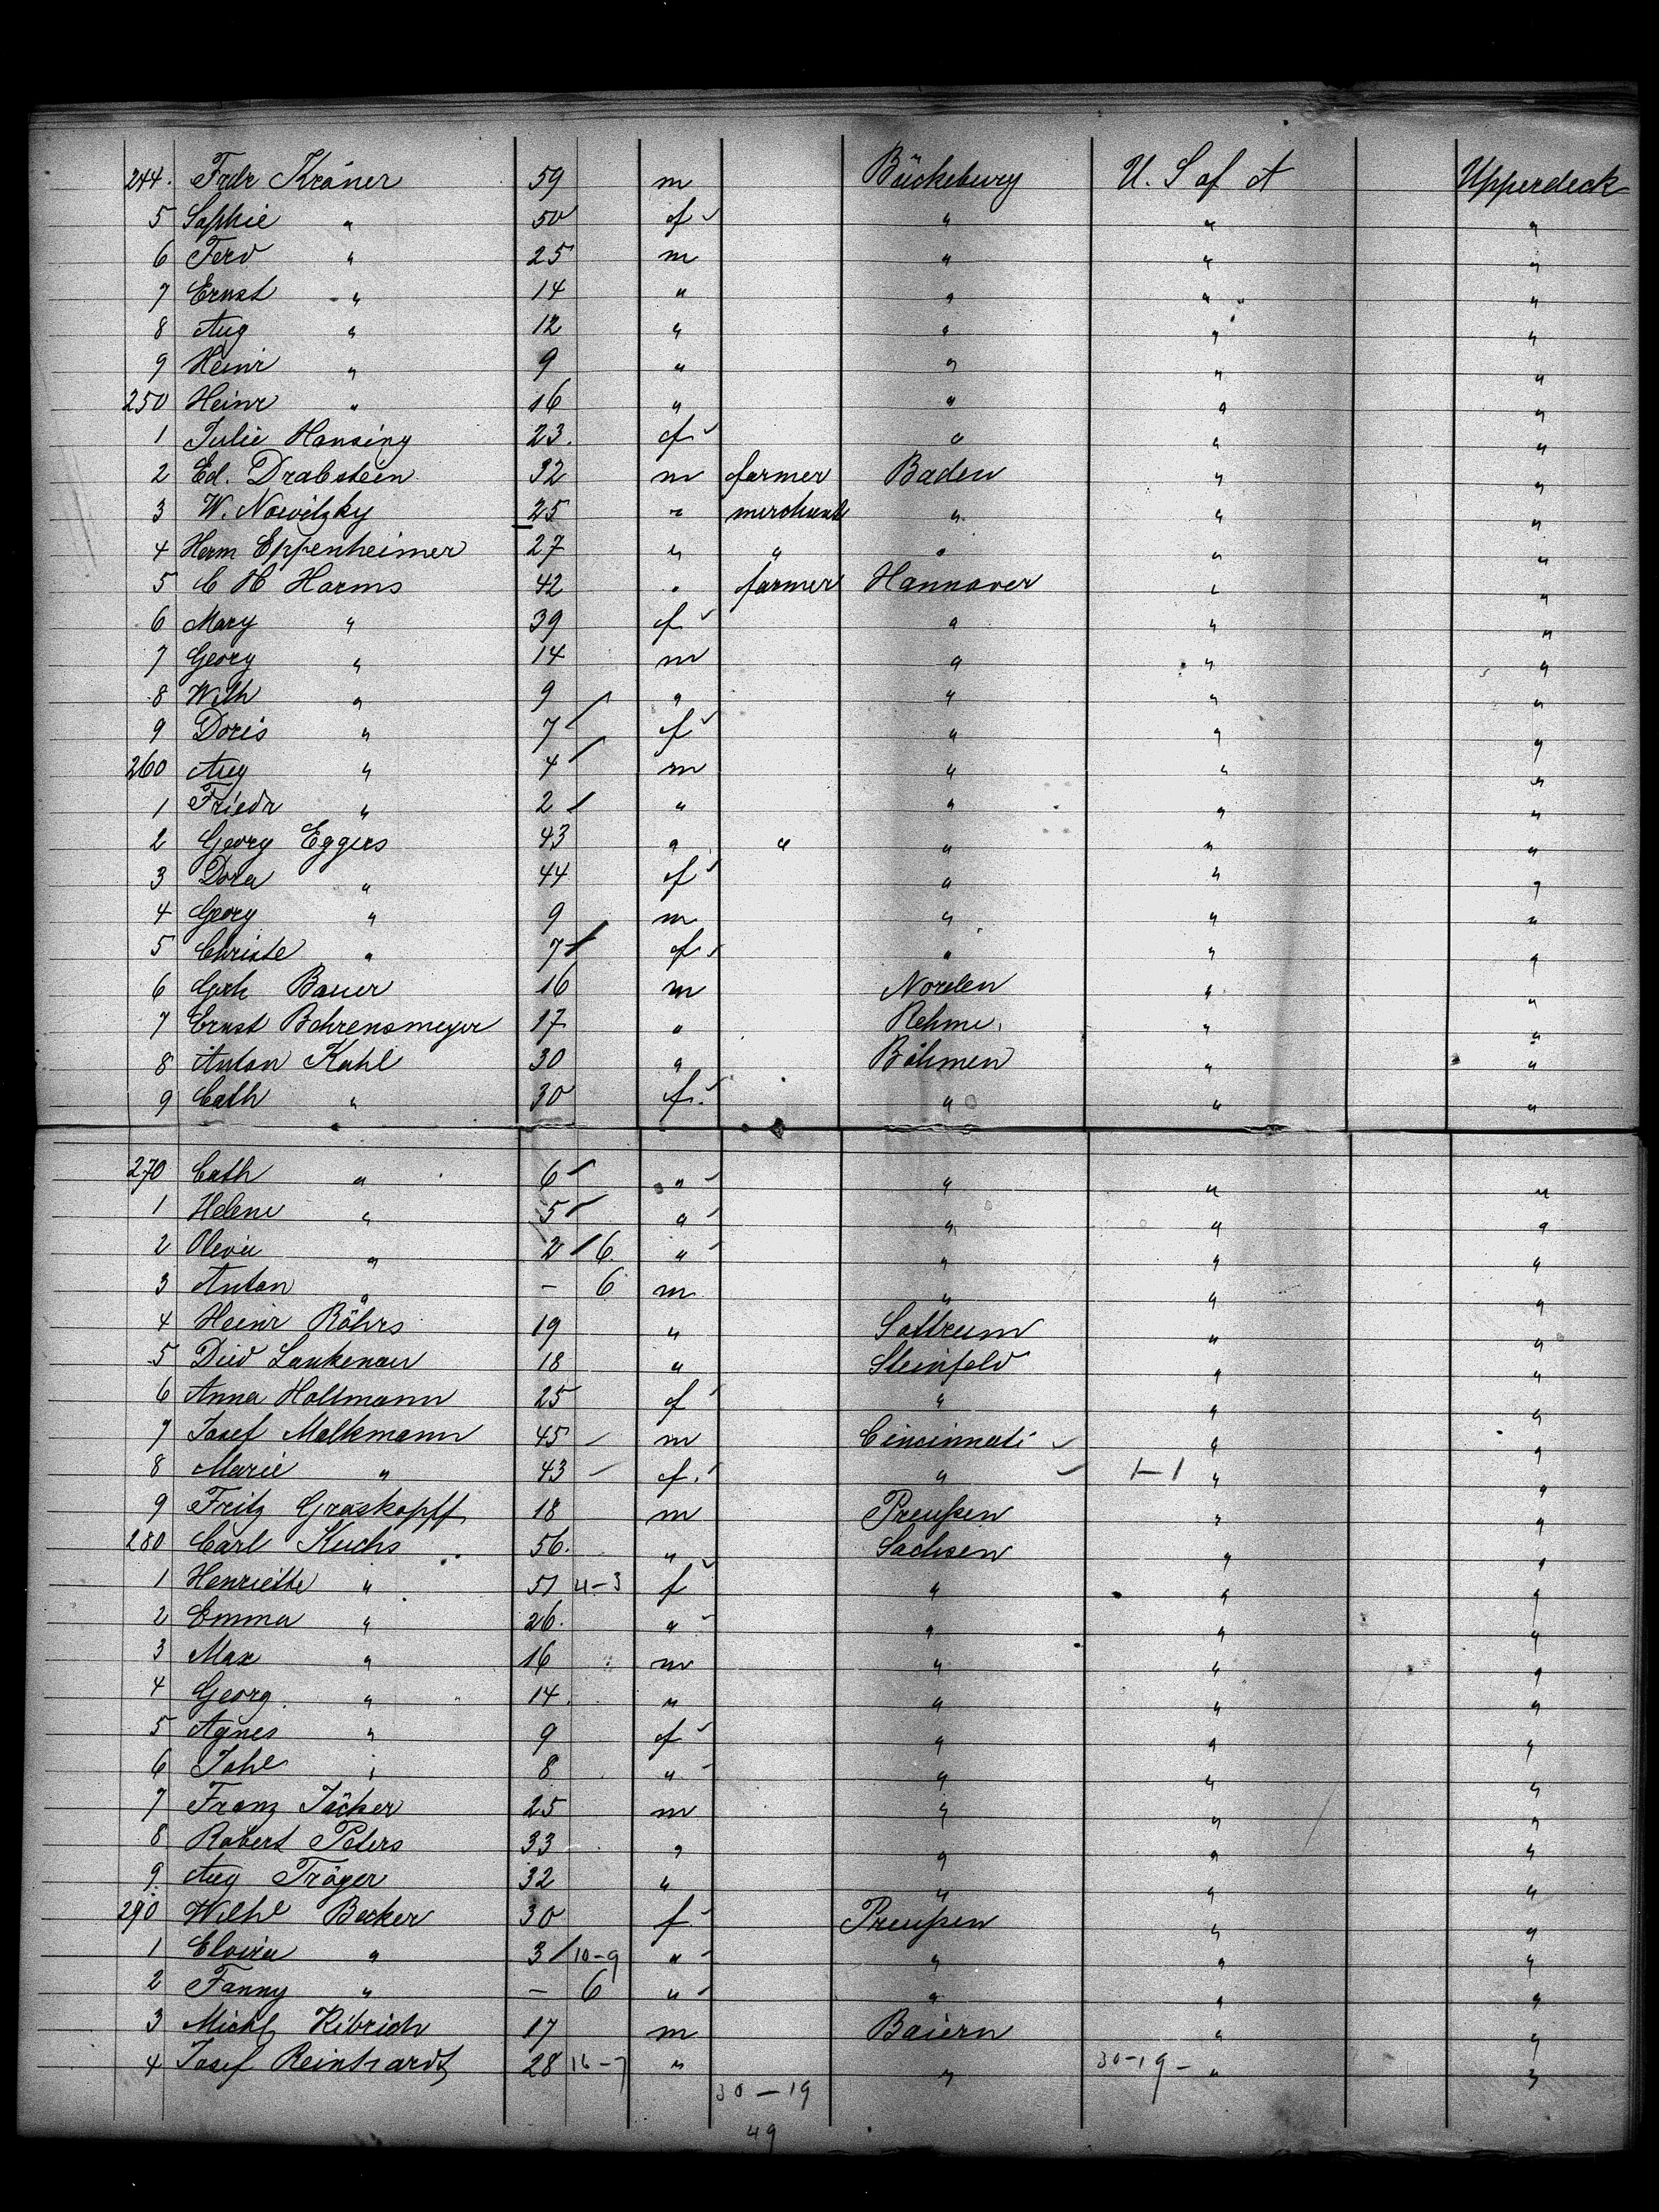 244. Fredr Kröner 59 m Bückeburg U. S of A Upperdeck
5 Sophie " 50 f " " "
6 Ferd " 25 m " " "
7 Ernst " 14 " " " "
8 Aug " 12 " " " "
9 Heinr " 9 " " " "
250 Heinr " 16 " " " "
1 Julie Hansing 23. f " " "
2 Ed. Drabstein 32 m farmer Baden " "
3 W. Nowitzky 25 " merchant " " "
4 Herm Eppenheimer 27 " " " " "
5 C H Harms 42 " farmer Hannover " "
6 Mary " 39 f " " "
7 Georg " 14 m " " "
8 Wilh " 9 " " " "
9 Doris " 7 f " " "
260 Aug " 4 m " " "
1 Friedr " 2 " " " "
2 Georg Eggers 43 " " " " "
3 Dora " 44 f " " "
4 Georg " 9 m " " "
5 Christe " 7 f " " "
6 Gerh Bauer 16 m Norden " "
7 Ernst Behrensmeyer 17 " Rehme " "
8 Anton Kahl 30 " Böhmen " "
9 Cath " 30 f. " " "
270 Cath " 6 " " " "
1 Helene " 5 " " " "
2 " 2 6 " " " "
3 Anton " - 6 m " " "
4 Heinr Röhrs 19 " Sottrum " "
5 Died Lankenau 18 " Steinfeld " "
6 Anna Hollmann 25 f " " "
7 Josef Molkmann 45 m Cincinnati " "
8 Marie " 43 f. " 1-1 " "
9 Fritz Graskopff 18 m Preußen " "
280 Carl Kuchs 56. " Sachsen " "
1 Henriette " 51 4-3 f " " "
2 Emma " 26. " " " "
3 Max " 16 m " " "
4 Georg. " 14. " " " "
5 Agnes " 9 f " " "
6 Johe " 8 " " " "
7 Franz Jäcker 25 m " " "
8 Robert Peters 33 " " " "
9. Aug Tröger 32 " " " "
290 Wilhe Becker 30 f Preußen " "
1 Elvira " 3 10-9 " " " "
2 Fanny " - 6 " " " "
3 Michl Kibrich 17 m Baiern " "
4 Josef Reinhardt 28 16-7 " " 30-19- " "
30-19
49